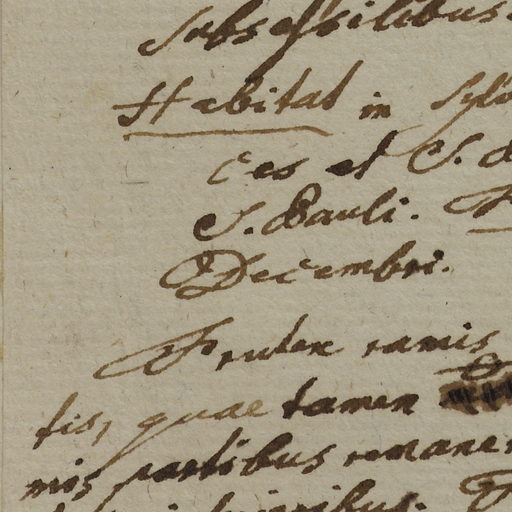 Subsessilibus.
Habitat in Sylv
ces et S.
S. Pauli.
Decembri.
Frutex ramis
tis, quae tamen
mis partibus remanen